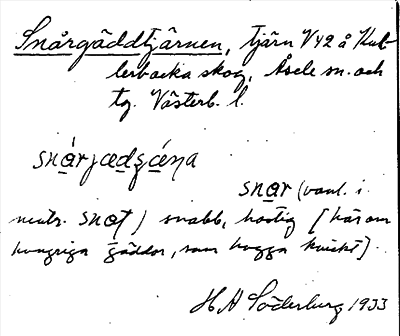 Snårgäddtjärnen, tjärn V42 å Kul-
lerbacka skog, Åsele sn. och
tg. Västerb. l.
snar (vanl. i
neutr. snat) snabb, hastig [här om
hungriga gäddor, som hugga kvickt].
H A Söderberg 1933